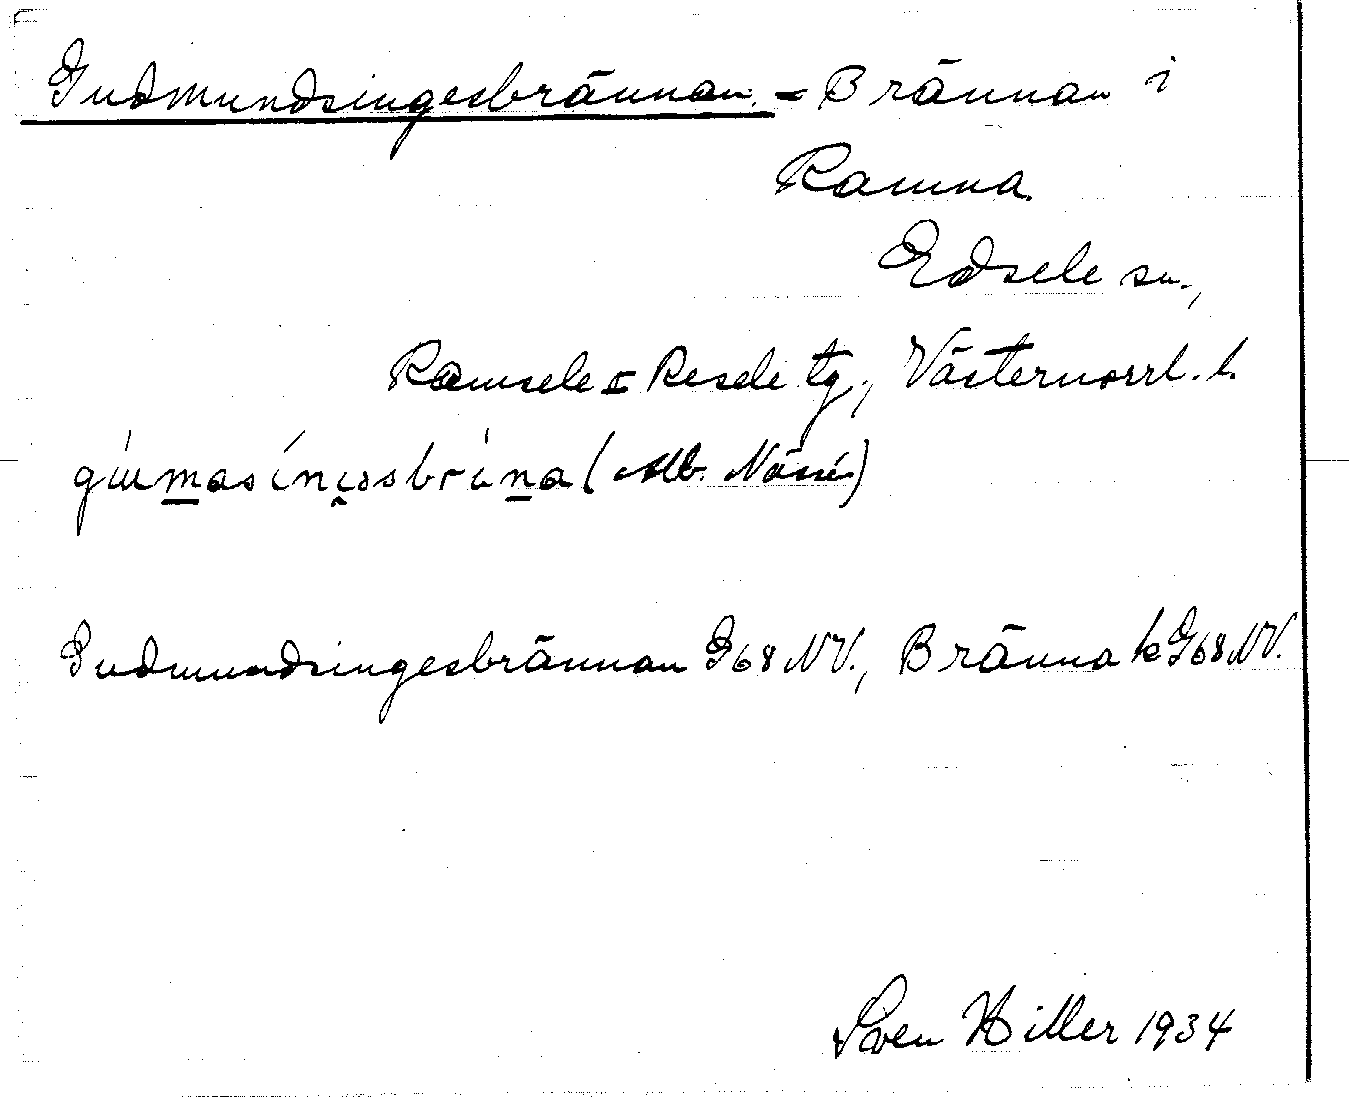 Gudmundsingesbrännan = Brännan i
Ramna.
Edsele sn.,
Ramsele o. Resele tg., Västernorrl. l.
(Mb. Näså)
Gudmundsingesbrännan G68 NV., Bränna k G68 NV.
Sven Hiller 1934